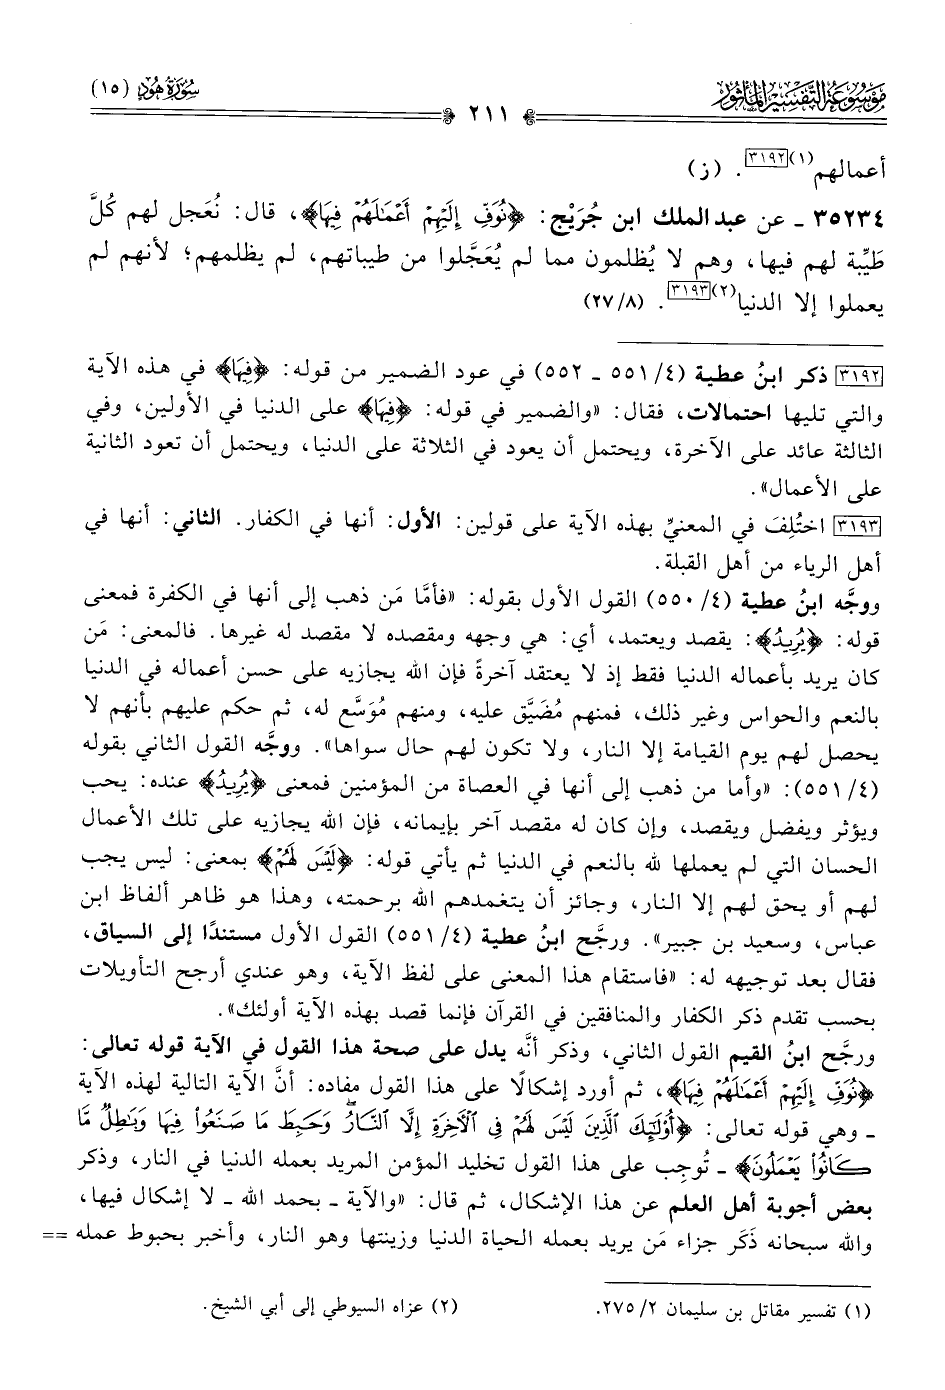 موسوعة التفسير المأثور
سورة هود (١٥)
٢١١
أعمالهم(١)[٣١٩٢]. (ز)
٣٥٢٣٤ ـ عن عبد الملك ابن جُرَيْج: ﴿نُوَفِّ إِلَيْهِمْ أَعْمَٰلَهُمْ فِيهَا﴾، قال: نُعَجل لهم كُلَّ
طَيِّبة لهم فيها، وهم لا يُظلمون مما لم يُعَجَّلوا من طيباتهم، لم يظلمهم؛ لأنهم لم
يعملوا إلا الدنيا(٢)[٣١٩٣]. (٨/ ٢٧)
[٣١٩٢] ذكر ابنُ عطية (٤/ ٥٥١ ـ ٥٥٢) في عود الضمير من قوله: ﴿فِيهَا﴾ في هذه الآية
والتي تليها احتمالات، فقال: «والضمير في قوله: ﴿فِيهَا﴾ على الدنيا في الأولين، وفي
الثالثة عائد على الآخرة، ويحتمل أن يعود في الثلاثة على الدنيا، ويحتمل أن تعود الثانية
على الأعمال».
[٣١٩٣] اختُلِفَ في المعنيِّ بهذه الآية على قولين: الأول: أنها في الكفار. الثاني: أنها في
أهل الرياء من أهل القبلة.
ووجَّه ابنُ عطية (٤/ ٥٥٠) القول الأول بقوله: «فأمَّا مَن ذهب إلى أنها في الكفرة فمعنى
قوله: ﴿يُرِيدُ﴾: يقصد ويعتمد، أي: هي وجهه ومقصده لا مقصد له غيرها. فالمعنى: مَن
كان يريد بأعماله الدنيا فقط إذ لا يعتقد آخرةً فإن الله يجازيه على حسن أعماله في الدنيا
بالنعم والحواس وغير ذلك، فمنهم مُضَيَّق عليه، ومنهم مُوَسَّع له، ثم حكم عليهم بأنهم لا
يحصل لهم يوم القيامة إلا النار، ولا تكون لهم حال سواها». ووجَّه القول الثاني بقوله
(٤/ ٥٥١): «وأما من ذهب إلى أنها في العصاة من المؤمنين فمعنى ﴿يُرِيدُ﴾ عنده: يحب
ويؤثر ويفضل ويقصد، وإن كان له مقصد آخر بإيمانه، فإن الله يجازيه على تلك الأعمال
الحسان التي لم يعملها لله بالنعم في الدنيا ثم يأتي قوله: ﴿لَيْسَ لَهُمْ﴾ بمعنى: ليس يجب
لهم أو يحق لهم إلا النار، وجائز أن يتغمدهم الله برحمته، وهذا هو ظاهر ألفاظ ابن
عباس، وسعيد بن جبير». ورجَّح ابنُ عطية (٤/ ٥٥١) القول الأول مستندًا إلى السياق،
فقال بعد توجيهه له: «فاستقام هذا المعنى على لفظ الآية، وهو عندي أرجح التأويلات
بحسب تقدم ذكر الكفار والمنافقين في القرآن فإنما قصد بهذه الآية أولئك».
ورجَّح ابنُ القيم القول الثاني، وذكر أنَّه يدل على صحة هذا القول في الآية قوله تعالى:
﴿نُوَفِّ إِلَيْهِمْ أَعْمَٰلَهُمْ فِيهَا﴾، ثم أورد إشكالًا على هذا القول مفاده: أنَّ الآية التالية لهذه الآية
ـ وهي قوله تعالى: ﴿أُوْلَٰٓئِكَ ٱلَّذِينَ لَيْسَ لَهُمْ فِي ٱلْأَخِرَةِ إِلَّا ٱلنَّارُۖ وَحَبِطَ مَا صَنَعُواْ فِيهَا وَبَٰطِلٌ مَّا
كَانُواْ يَعْمَلُونَ﴾ ـ تُوجِب على هذا القول تخليد المؤمن المريد بعمله الدنيا في النار، وذكر
بعض أجوبة أهل العلم عن هذا الإشكال، ثم قال: «والآية ـ بحمد الله ـ لا إشكال فيها،
والله سبحانه ذَكَر جزاء مَن يريد بعمله الحياة الدنيا وزينتها وهو النار، وأخبر بحبوط عمله ==
(١) تفسير مقاتل بن سليمان ٢/ ٢٧٥.
(٢) عزاه السيوطي إلى أبي الشيخ.